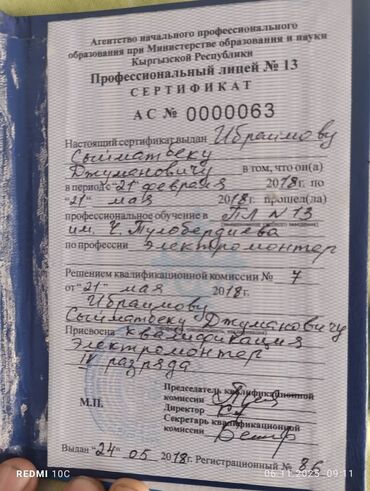 Агентство начального профессионального
образования при Министерстве образования и науки
Кыргызской Республики
Профессиональный лицей № 13
СЕРТИФИКАТ
АС № 0000063
Настоящий сертификат выдан Ибраимову
Сыйматбеку
Джумановичу в том, что он(а)
в период с "21" февраля 2018 г. по
"21" мая 2018 г. прошел(ла)
профессиональное обучение в ПЛ N 13
им. Ч. Тулобердиева
по профессии электромонтер
Решением квалификационной комиссии № 7
от "21" мая 2018 г.
Ибраимову
Сыйматбеку Джумановичу
Присвоена квалификация
Электромонтер
IV разряда
Председатель квалификационной
комиссии
Директор
М.П.
Секретарь квалификационной
комиссии
Выдан "24" 05 2018 г. Регистрационный №
REDMI 10C
06.11.2023 09:11